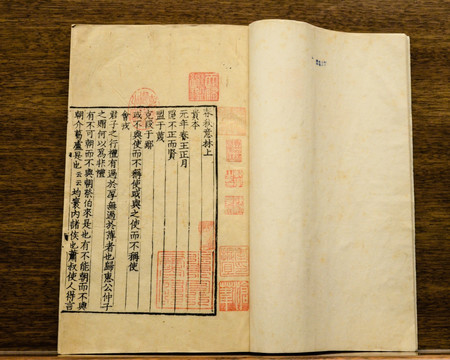 春秋意林上
貴本
元年春王正月
隱不正而賢
盟于蔑
克段于鄢
或不與使而不稱使或與之使而不稱使
會戎
君子之行禮有過於厚無過於薄者也歸惠公仲子
之賵何以爲非禮
有不可朝而不與朝祭伯來是也有不能朝而不與
朝介葛盧是也云云均寰內諸侯也蕭叔使人得言